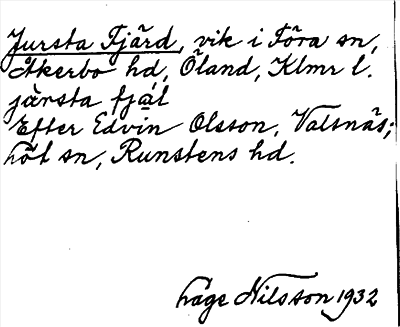 Jursta Fjärd, vik i Föra sn,
Åkerbo hd, Öland, Klmr l.
järsta fjäl
Efter Edvin Olsson, Valsnäs,
Löt sn, Runstens hd.
Tage Nilsson 1932